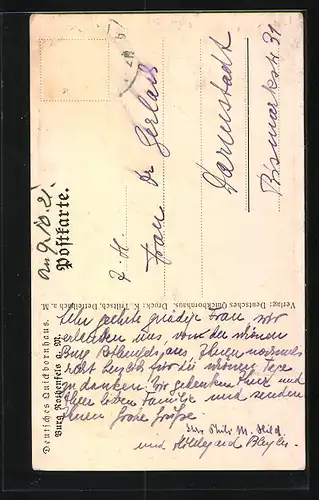 an 9. 10. 21.
Postkarte.
Frau Dr Gerlach
Darmstadt
Bismarkstr 31
Deutsches Quickbornhaus.
Burg Rothenfels a. M.
Verlag: Deutsches Quickbornhaus. Druck: K. Triltsch, Dettelbach a. M.
Sehr geehrte gnädige Frau wir
erlauben uns, von der schönen
Burg Rothenfels aus, Ihnen nochmals
recht herzl. für die schönen Tage
zu danken. Wir gedenken Ihrer und
Ihrer lieben Familie und senden
Ihnen frohe Grüße.
Ihr Phil. M.
und Hildegard